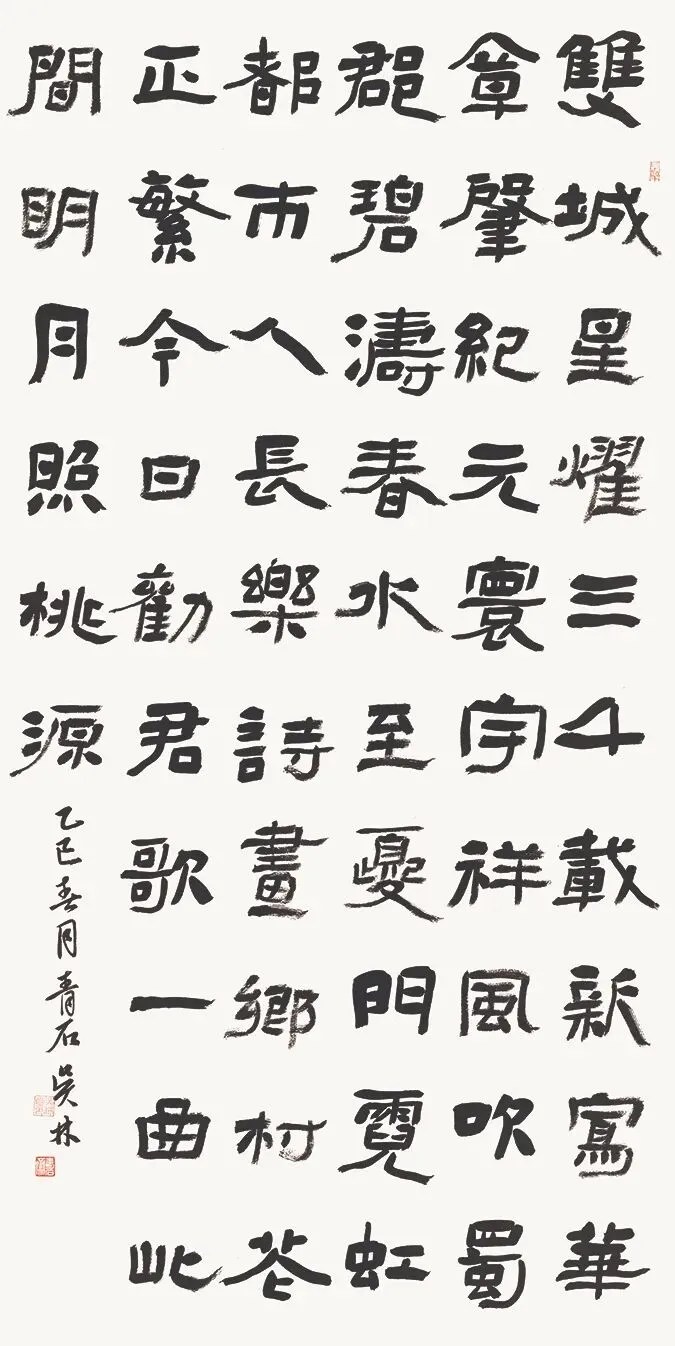 雙城星燿三千載新寫華
章肇紀元寰宇祥風吹蜀
郡碧濤春水至夔門霓虹
都市人長樂詩畫鄉村花
正繁今日勸君歌一曲此
間明月照桃源
乙巳春月青石吴林